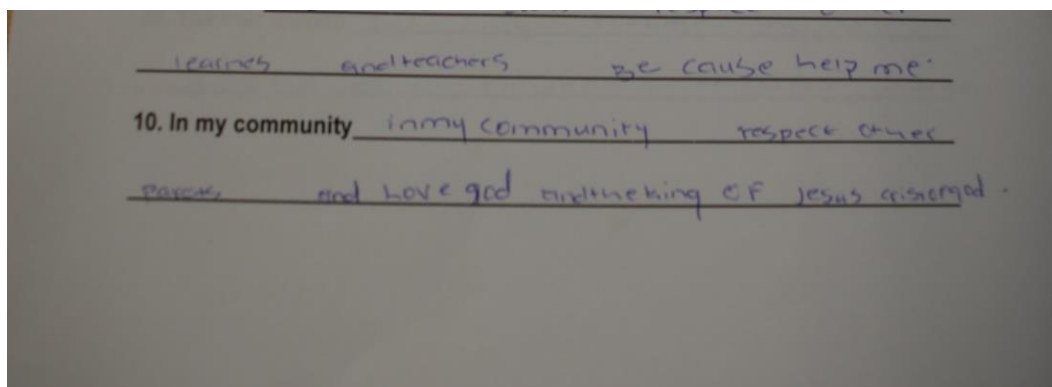 respect other
learnes andteachers be cause help me.
10. In my community inmy community respect other
parents and Love god andtheking OF Jesus